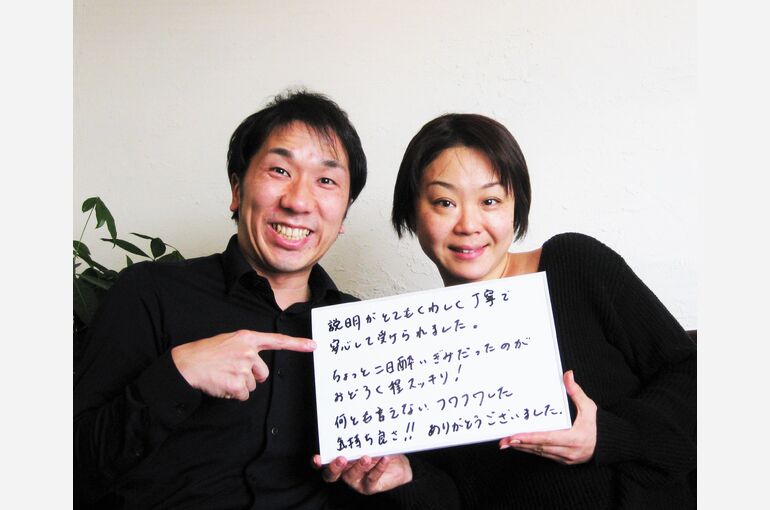 説明がとてもくわしく丁寧で
安心して受けられました。
ちょっと二日酔いぎみだったのが
おどろく程スッキリ!
何とも言えないフワフワした
気持ち良さ!! ありがとうございました.